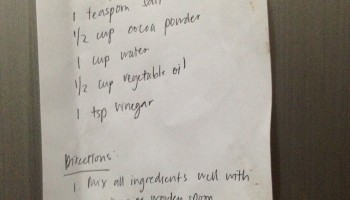 1 teaspoon salt
1/2 cup cocoa powder
1 cup water
1/2 cup vegetable oil
1 tsp vinegar
Directions:
1. Mix all ingredients well with
wooden spoon